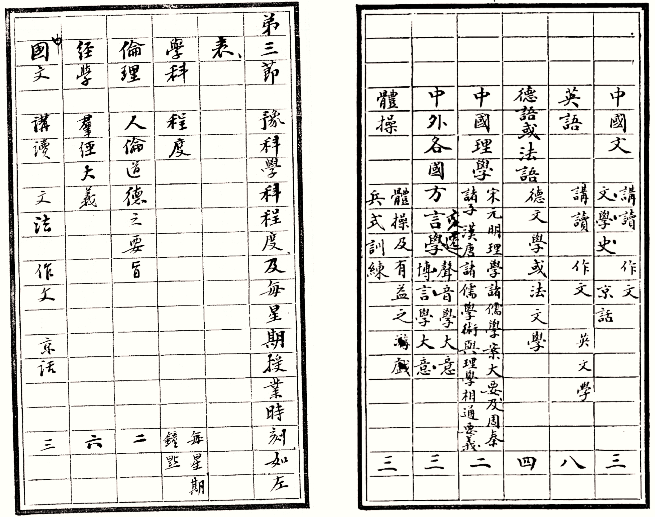 中國文 講讀 作文 文學史 京話 三
英語 講讀 作文 英文學 八
德語或法語 德文學或法文學 四
中國理學 宋元明理學諸儒學案大要及周秦諸子漢唐諸儒學術與理學相通意義 二
中外各國方言學 變遷 聲音學大意 博言學大意 三
體操 體操及有益之游戲 兵式訓練 三
第三節 豫科學科程度及每星期授業時刻如左
表
學科 程度 每星期鐘點
倫理 人倫道德之要旨 二
經學 羣經大義 六
中國文 講讀 文法 作文 京話 三